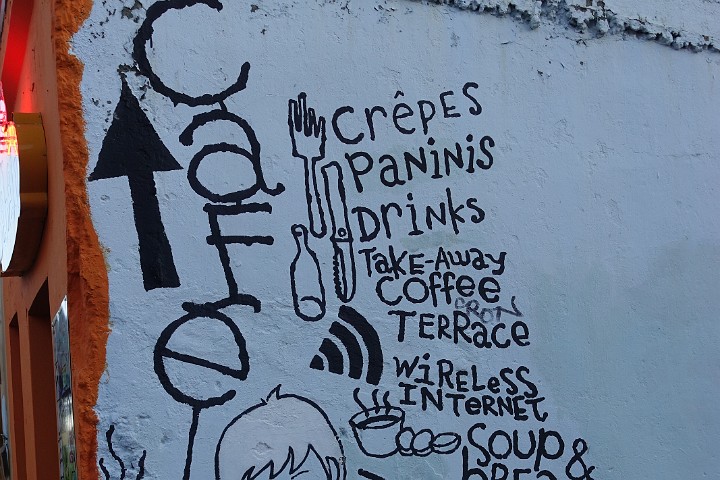 Cafe
Crêpes
Paninis
Drinks
Take-Away
Coffee
Terrace
Wireless
Internet
Soup &